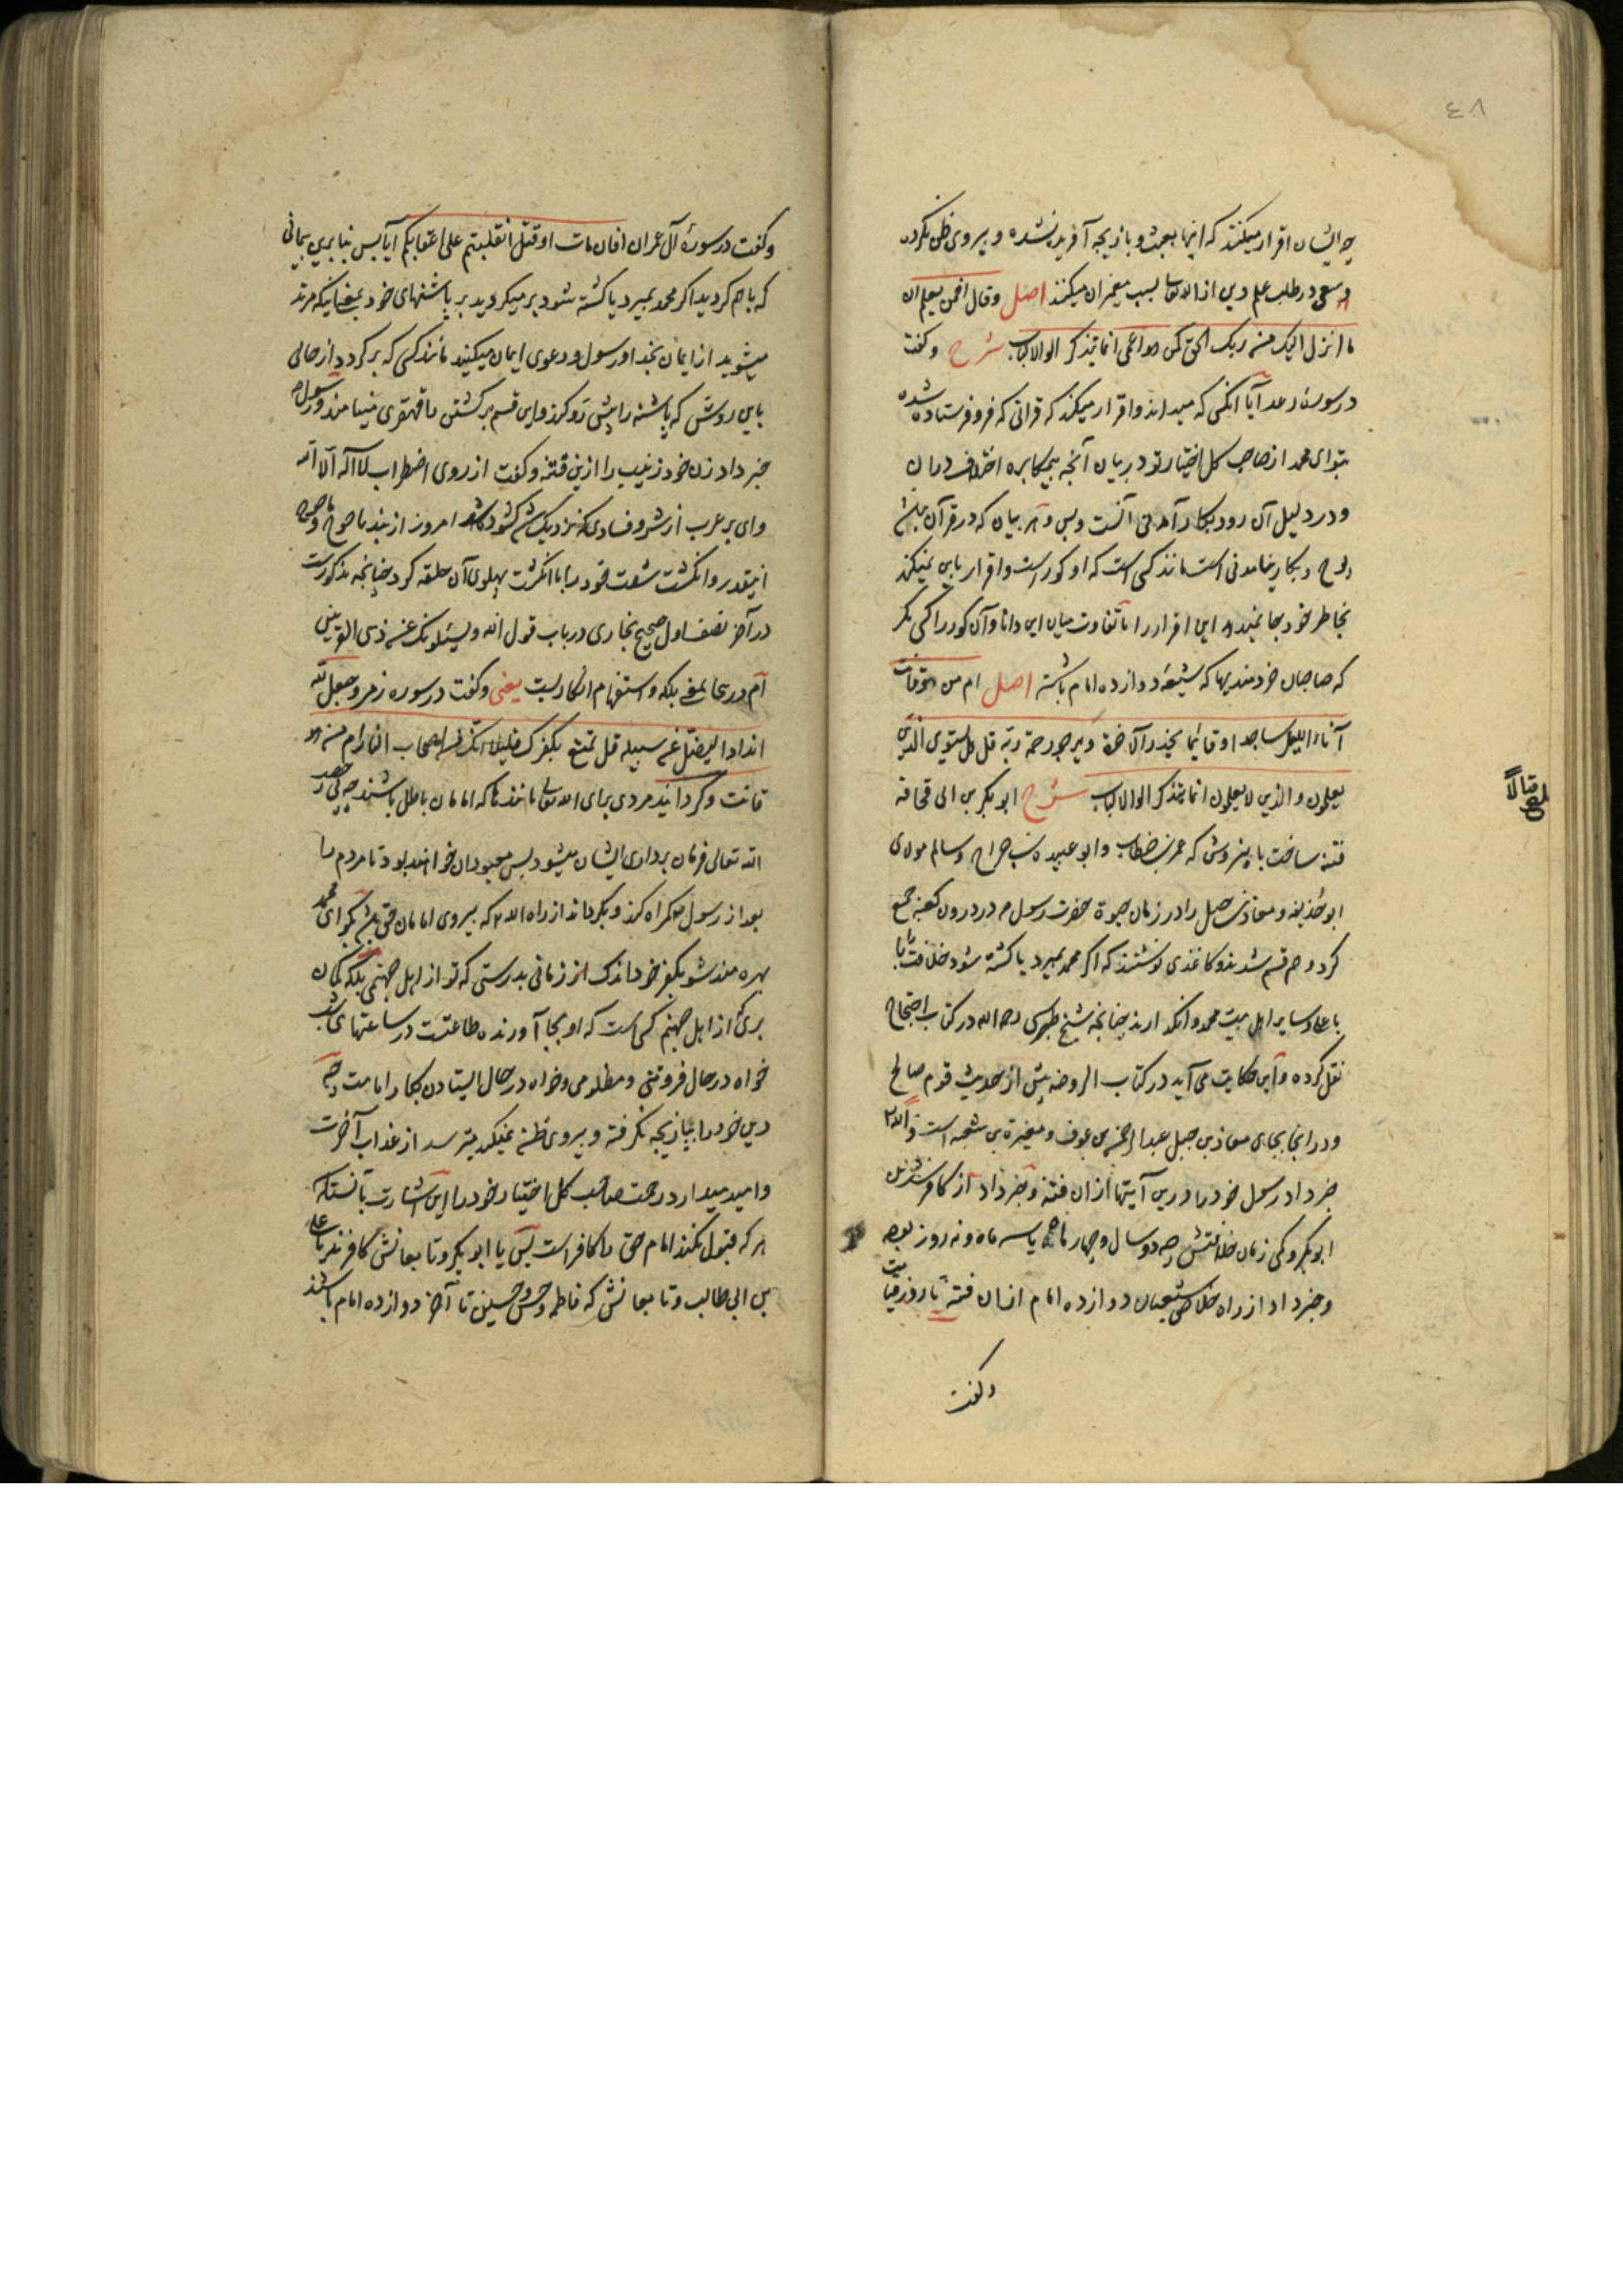 ٤٨
چه ایشان اقرار میکنند که اینها بعبث و بازیچه آفریده نشده و پیروی ظن نکردن
و سعی در طلب علم دین از الله تعالی بسبب پیغمبران میکنند اصل وقال افمن یعلم ان
ما انزل الیک من ربک الحق کمن هو اعمی انما یتذکر اولوا الالباب شرح و گفت
در سورۀ رعد آیا آنکس که میداند و اقرار میکند که قرآنی که فرو فرستاده شده
بتو ای محمد از صاحب کل اختیار تو در بیان آنچه بیمکابره اختلاف در آن
و در دلیل آن رود بکار آمدنی آنست و بس و هر بیان که در قرآن نباشد
بکار نیامدنی است مانند کسی است که او کور است و اقرار باین نمیکند
بخاطر خود بجا نمیدهد این اقرار را تا تفاوت میان این دانا و آن کور را کسی مگر
که صاحبان خردمندیها که شیعۀ دوازده امام باشند اصل ام من هو قانت
آناء اللیل ساجدا و قائما یحذر الآخرة و یرجو رحمة ربه قل هل یستوی الذین
یعلمون و الذین لا یعلمون انما یتذکر اولوا الالباب شرح ابوبکر بن ابی قحافه
فتنه ساخت باین روش که عمر بن خطاب و ابو عبیده بن جراح و سالم مولای
ابو حذیفه و معاذ بن جبل را در زمان حیوة حضرت رسول در درون کعبه جمع
کرد و هم قسم شدند و کاغذی نوشتند که اگر محمد بمیرد یا کشته شود خلافت را با
با علی و سایر اهل بیت محمد وانگذارند چنانچه شیخ طبرسی رحمه الله در کتاب احتجاج
نقل کرده و این حکایت می آید در کتاب الروضه پیش از حدیث قوم صالح
و در انجا بجای معاذ بن جبل عبدالرحمن بن عوف و مغیرة بن شعبه است و الله
خبر داد رسول خود را درین آیتها ازان فتنه و خبر داد از کافر شدن
ابوبکر و کمی زمان خلافتش چه دو سال و چهار ماه یا سه ماه و نه روز بوده
و خبر داد از راه خلاصی شیعیان دوازده امام ازان فتنه تا روز قیامت
وگفت
وگفت در سورۀ آل عمران افان مات او قتل انقلبتم علی اعقابکم آیا پس بنابرین پیمانی
که با هم کردید اگر محمد بمیرد یا کشته شود بر میگردید بر پاشنهای خود بمعنی اینکه مرتد
میشوید از ایمان بخدا و رسول و دعوی ایمان میکنید مانند کسی که برگردد از حالی
باین روش که پاشنه را پیش رو کند و این قسم برگشتن را قهقری مینامند و رسول
خبر داد زن خود زینب را ازین فتنه و گفت از روی اضطراب لا اله الا الله
وای بر عرب از شر و فسادی که نزدیک شد گشوده شد امروز از بند یاجوج و ماجوج
اینقدر و انگشت شصت خود را با انگشت پهلوی آن حلقه کرد چنانچه مذکورست
در آخر نصف اول صحیح بخاری در باب قول الله و یسئلونک عن ذی القرنین
ام در هر دو جا بمعنی بلکه و استفهام انکاریست یعنی وگفت در سوره زمر وجعل لله
اندادا لیضل عن سبیله قل تمتع بکفرک قلیلا انک من اصحاب النار ام من هو
قانت و گردانید مردی برای الله تعالی مانندها که امامان باطل باشند چه بی رخصت
الله تعالی فرمان برداری ایشان میشود پس معبودان خواهند بود تا مردم را
بعد از رسول گمراه کند و بگرداند از راه الله که پیروی امامان حق باشد بگو ای محمد
بهره مند شو بکفر خود اندک از زمانی بدرستی که تو از اهل جهنمی بلکه گمان
بری از اهل جهنم کسی است که او بجا آورنده طاعتست در ساعتهای شب
خواه در حال فروتنی و مظلومی و خواه در حال ایستادن بکار امامت و چه
دین خود را ببازیچه نگرفته و پیروی ظن نمیکند میترسد از عذاب آخرت
و امید میدارد رحمت صاحب کل اختیار خود را این اشارت بآنستکه
هر که قبول نکند امام حق را کافر است پس یا ابوبکر و تابعانش کافرند یا علی
بن ابی طالب و تابعانش که فاطمه و حسن و حسین تا آخر دوازده امام باشند